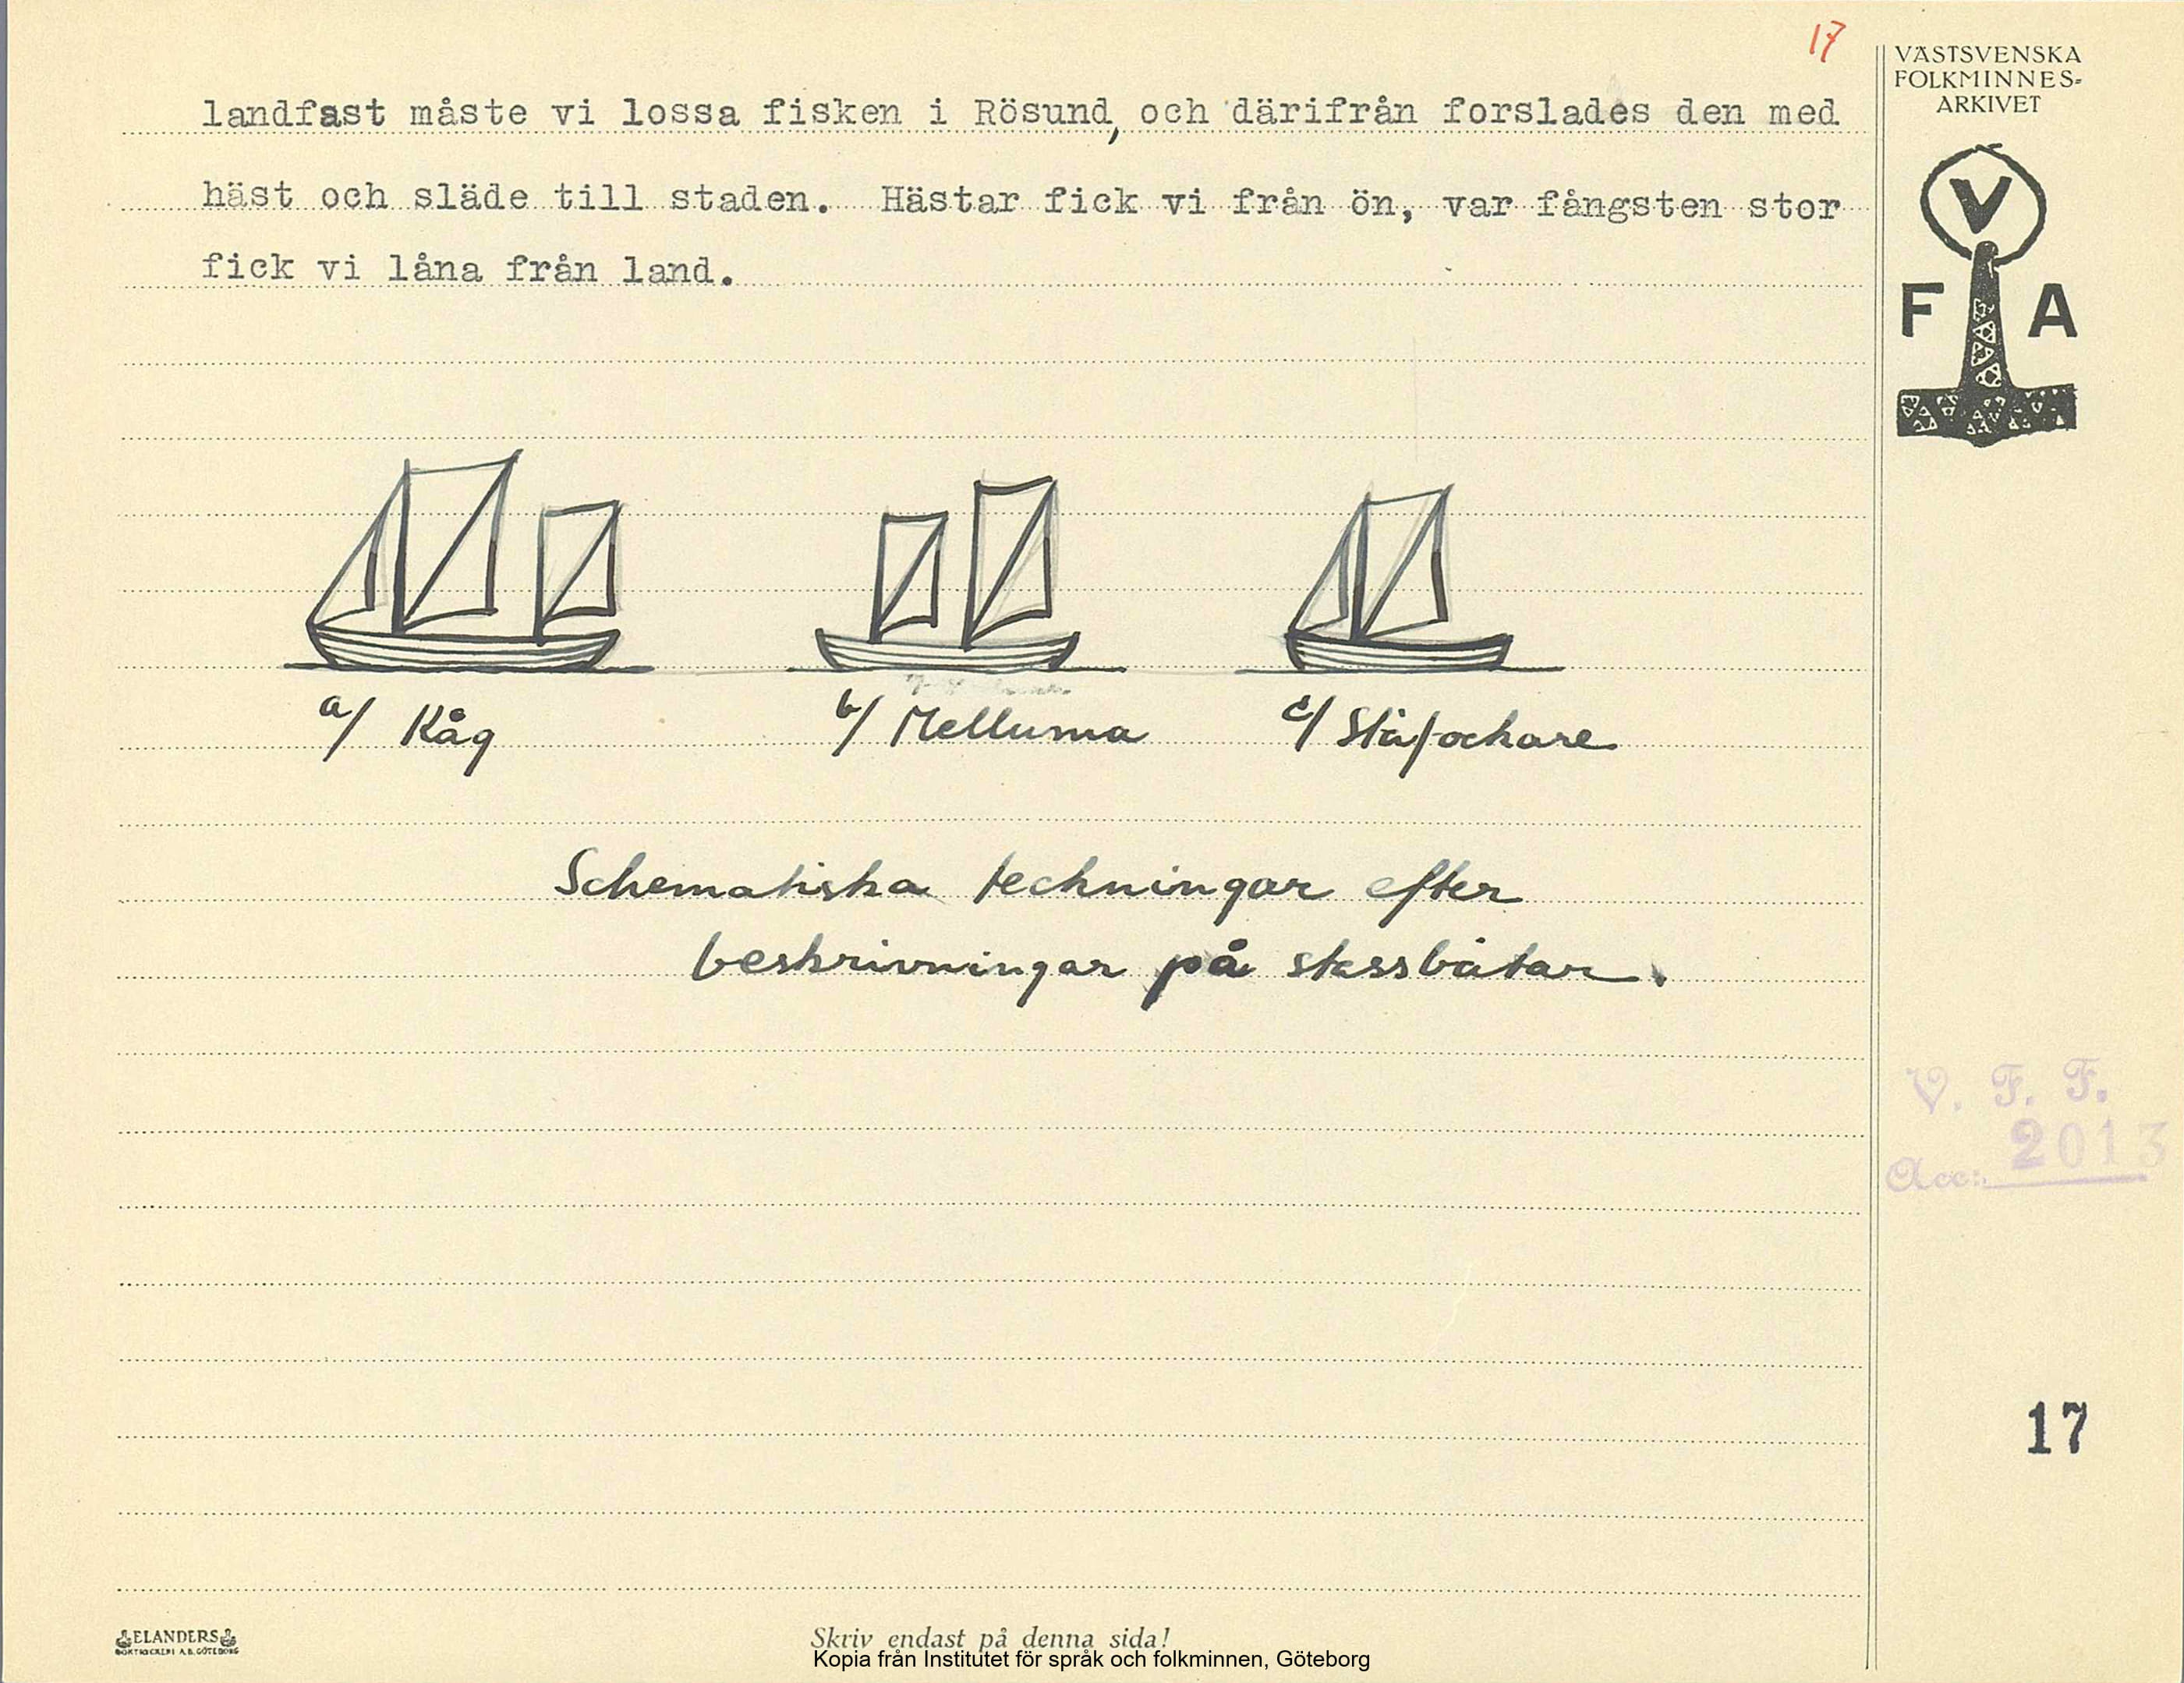 17
VÄSTSVENSKA
FOLKMINNES=
ARKIVET
V
F A
landfast måste vi lossa fisken i Rösund, och därifrån forslades den med
häst och släde till staden. Hästar fick vi från ön, var fångsten stor
fick vi låna från land.
a/ Kåg
b/ Melluma
c/ Släfockare
Schematiska teckningar efter
beskrivningar på stassbåtar.
V. F. F.
Acc: 2013
17
ELANDERS
BOKTRYCKERI A.B. GÖTEBORG
Skriv endast på denna sida!
Kopia från Institutet för språk och folkminnen, Göteborg